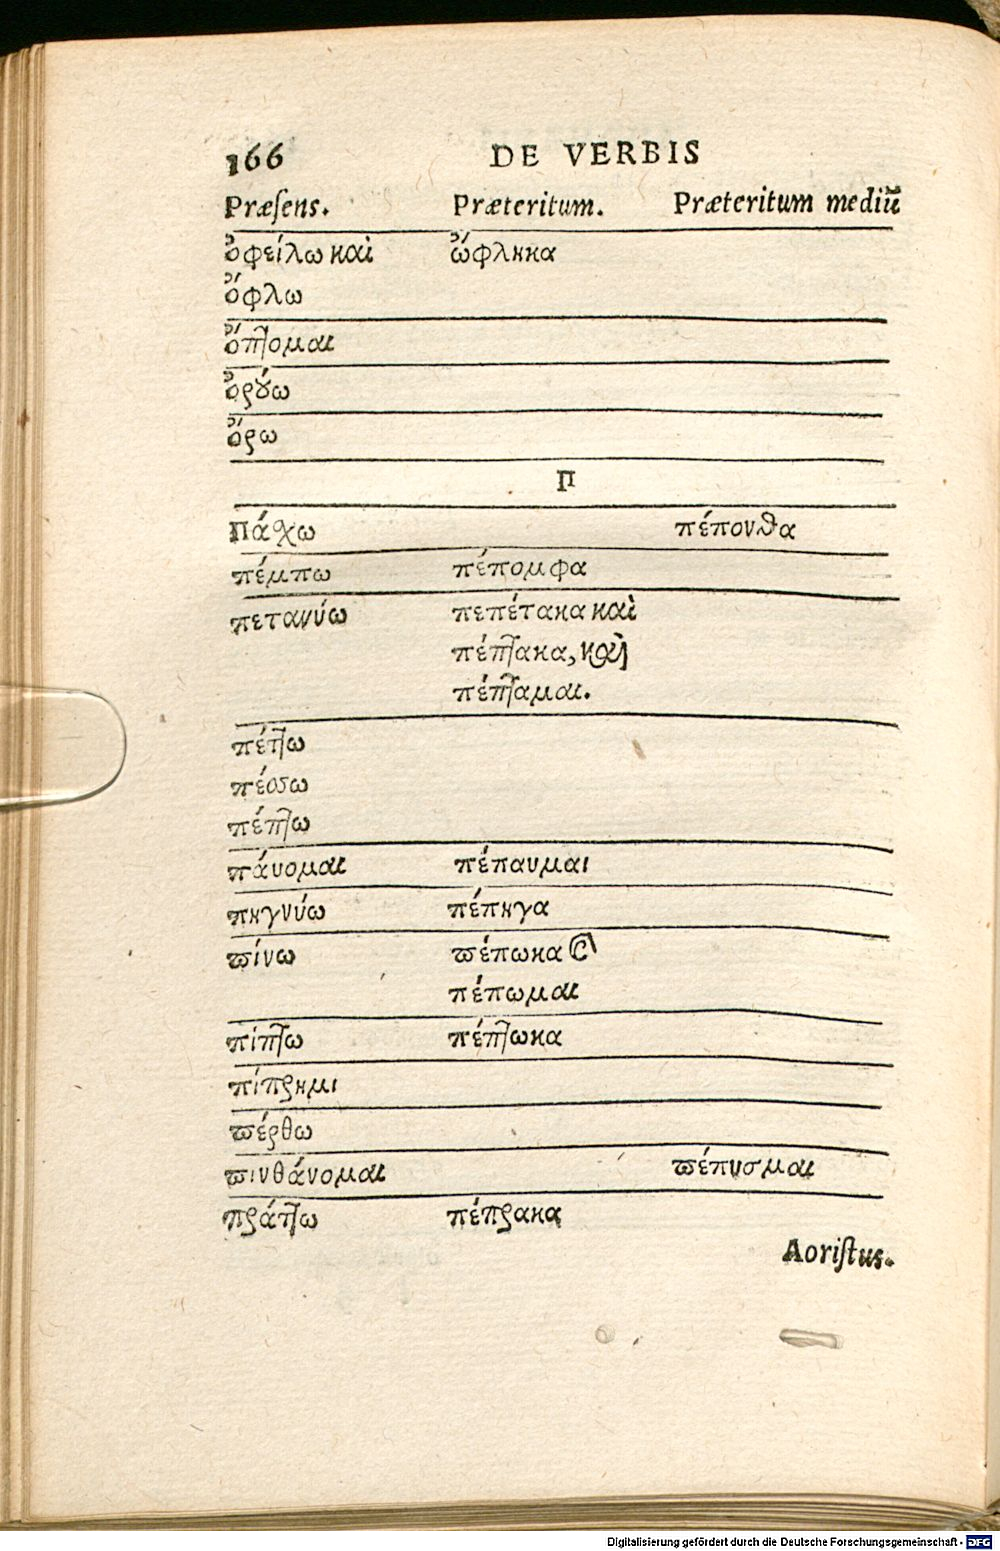 166 DE VERBIS
Præſens. Præteritum. Præteritum mediū
ὀφείλω καὶ ὤφληκα
ὄφλω
ὄπτομαι
ὀρούω
ὄρω
Π
Πάσχω πέπονθα
πέμπω πέπομφα
πεταννύω πεπέτακα καὶ
πέπτακα, καὶ
πέπταμαι.
πέττω
πέσσω
πέπτω
πάυομαι πέπαυμαι
πηγνύω πέπηγα
πίνω πέπωκα καὶ
πέπωμαι
πίπτω πέπτωκα
πίπρημι
πέρθω
πινθάνομαι πέπυσμαι
πράττω πέπρακα
Aoriſtus.
Digitalisierung gefördert durch die Deutsche Forschungsgemeinschaft - DFG